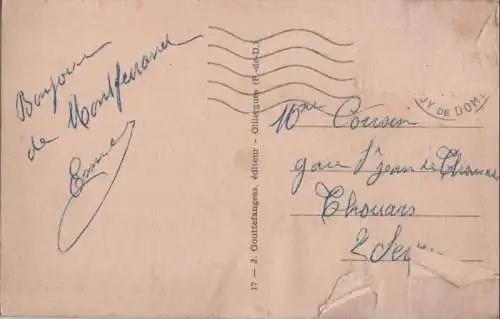 Bonjour
de Montferrand
17 — J. Gouttefangeas, éditeur - Olliergues (P.-de-D.)
UY DE DOME
Cousin
gare St Jean de Thouars
Thouars
2 Sev